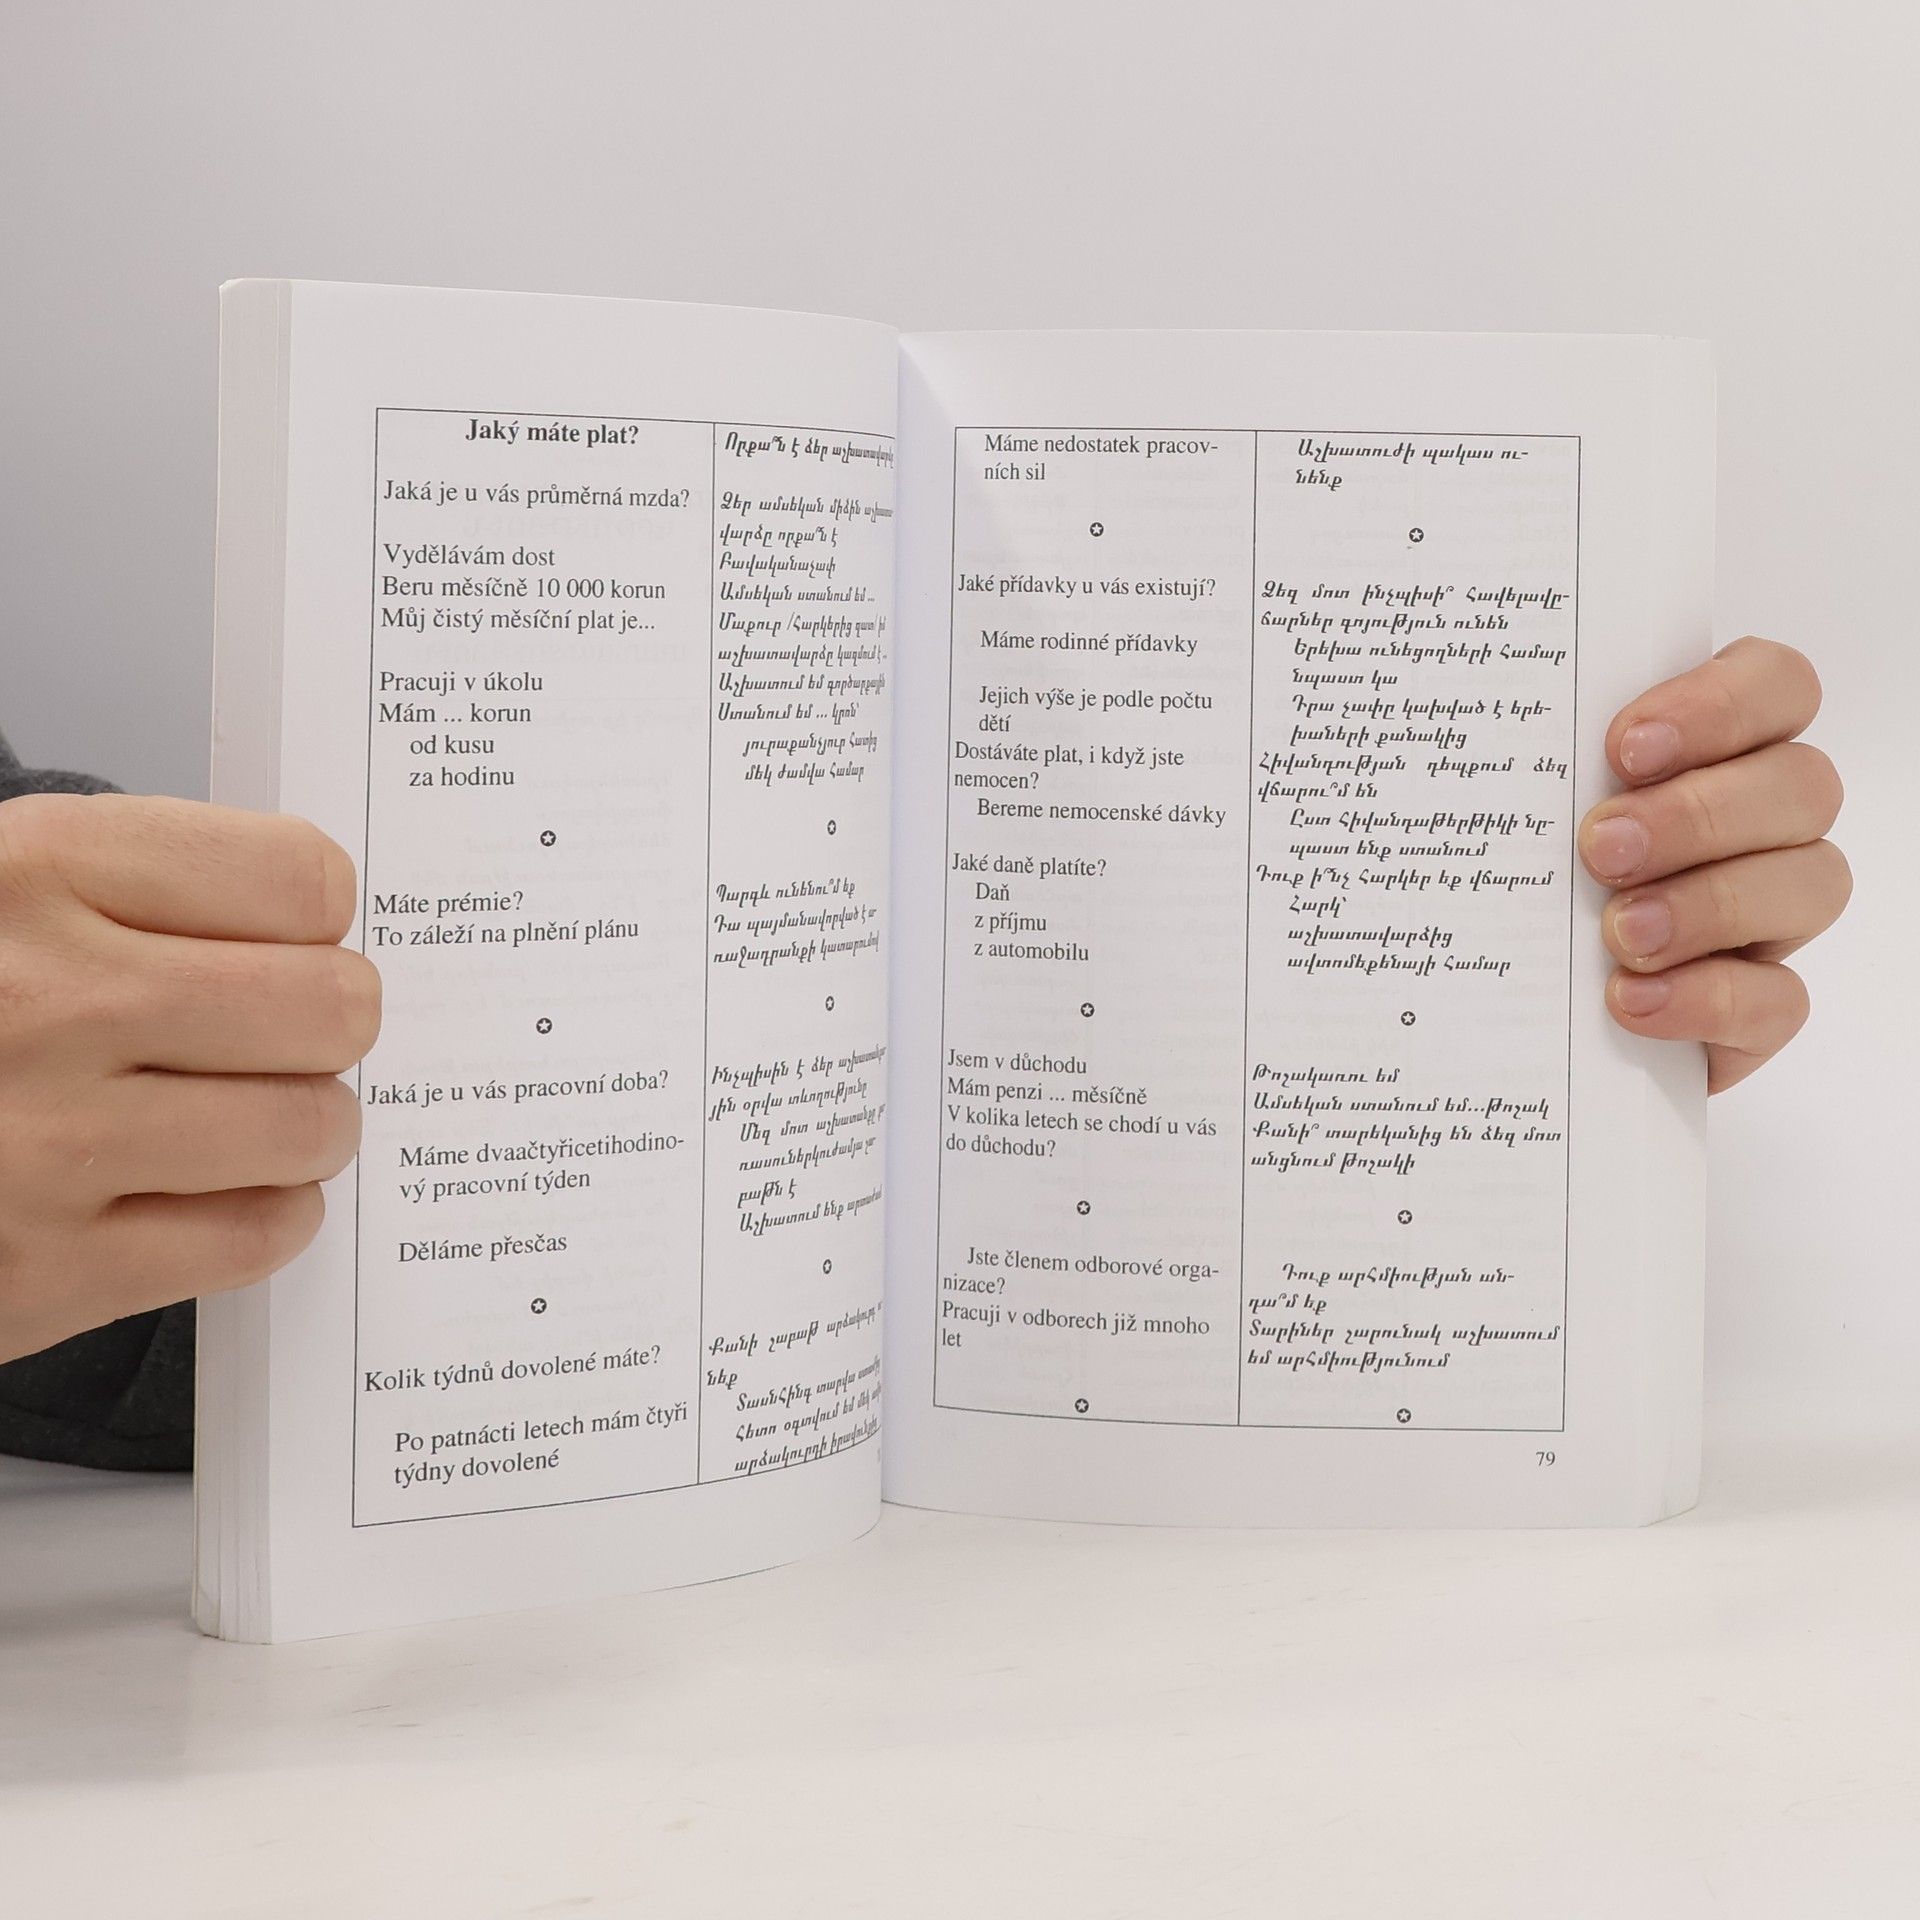 Jaký máte plat?
Jaká je u vás průměrná mzda?
Vydělávám dost
Beru měsíčně 10 000 korun
Můj čistý měsíční plat je...
Pracuji v úkolu
Mám ... korun
od kusu
za hodinu
Máte prémie?
To záleží na plnění plánu
Jaká je u vás pracovní doba?
Máme dvaačtyřicetihodino-
vý pracovní týden
Děláme přesčas
Kolik týdnů dovolené máte?
Po patnácti letech mám čtyři
týdny dovolené
Որքա՞ն է ձեր
Ձեր ամսեկան միջին
վարձը որքա՞ն է
Բավականաչափ
Ամսեկան ստանում եմ ...
Մաքուր /հարկերից զատ/ իմ
աշխատավարձը կազմում է ..
Աշխատում եմ գործարքային
Ստանում եմ ... կրոն՝
յուրաքանչյուր հատից
մեկ ժամվա համար
Պարգև ունենու՞մ եք
Դա պայմանավորված է ա-
ռաջադրանքի կատարումով
Ինչպիսին է ձեր
յին օրվա տևողությունը
Մեզ մոտ աշխատանքը
ռասուներկուժամյա շա-
բաթն է
Աշխատում ենք
Քանի շաբաթ արձակուրդ
նեք
Տասնհինգ տարվա
հետո օգտվում եմ մեկ
արձակուրդի իրավունքից
Máme nedostatek pracov-
ních sil
Jaké přídavky u vás existují?
Máme rodinné přídavky
Jejich výše je podle počtu
dětí
Dostáváte plat, i když jste
nemocen?
Bereme nemocenské dávky
Jaké daně platíte?
Daň
z příjmu
z automobilu
Jsem v důchodu
Mám penzi ... měsíčně
V kolika letech se chodí u vás
do důchodu?
Jste členem odborové orga-
nizace?
Pracuji v odborech již mnoho
let
Աշխատուժի պակաս ու-
նենք
Ձեզ մոտ ինչպիսի՞ հավելավը-
ճարներ գոյություն ունեն
Երեխա ունեցողների համար
նպաստ կա
Դրա չափը կախված է երե-
խաների քանակից
Հիվանդության դեպքում ձեզ
վճարու՞մ են
Ըստ հիվանդաթերթիկի նը-
պաստ ենք ստանում
Դուք ի՞նչ հարկեր եք վճարում
Հարկ՝
աշխատավարձից
ավտոմեքենայի համար
Թոշակառու եմ
Ամսեկան ստանում եմ...թոշակ
Քանի՞ տարեկանից են ձեզ մոտ
անցնում թոշակի
Դուք արհմիության ան-
դա՞մ եք
Տարիներ շարունակ աշխատում
եմ արհմիությունում
79